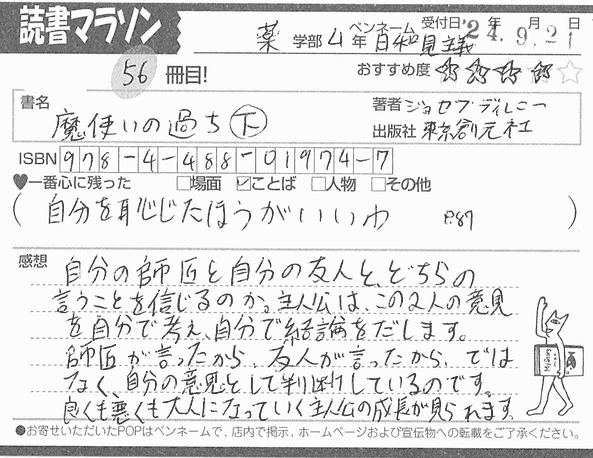 読書マラソン
薬 学部 4 年 ペンネーム 日和見主義 受付日 '24年 9月 21日
56 冊目!
おすすめ度 ☆☆☆☆☆
書名 魔使いの過ち 下
著者 ジョセフ・ディレニー
出版社 東京創元社
ISBN 978-4-488-01974-7
♥一番心に残った □場面 ☑ことば □人物 □その他
( 自分を恥じたほうがいいわ P.87 )
感想
自分の師匠と自分の友人と、どちらの
言うことを信じるのか。主人公は、この2人の意見
を自分で考え、自分で結論をだします。
師匠が言ったから、友人が言ったから、では
なく、自分の意見として判断しているのです。
良くも悪くも大人になっていく主人公の成長が見られます。
●お寄せいただいたPOPはペンネームで、店内で掲示、ホームページおよび宣伝物への転載をご了承ください。